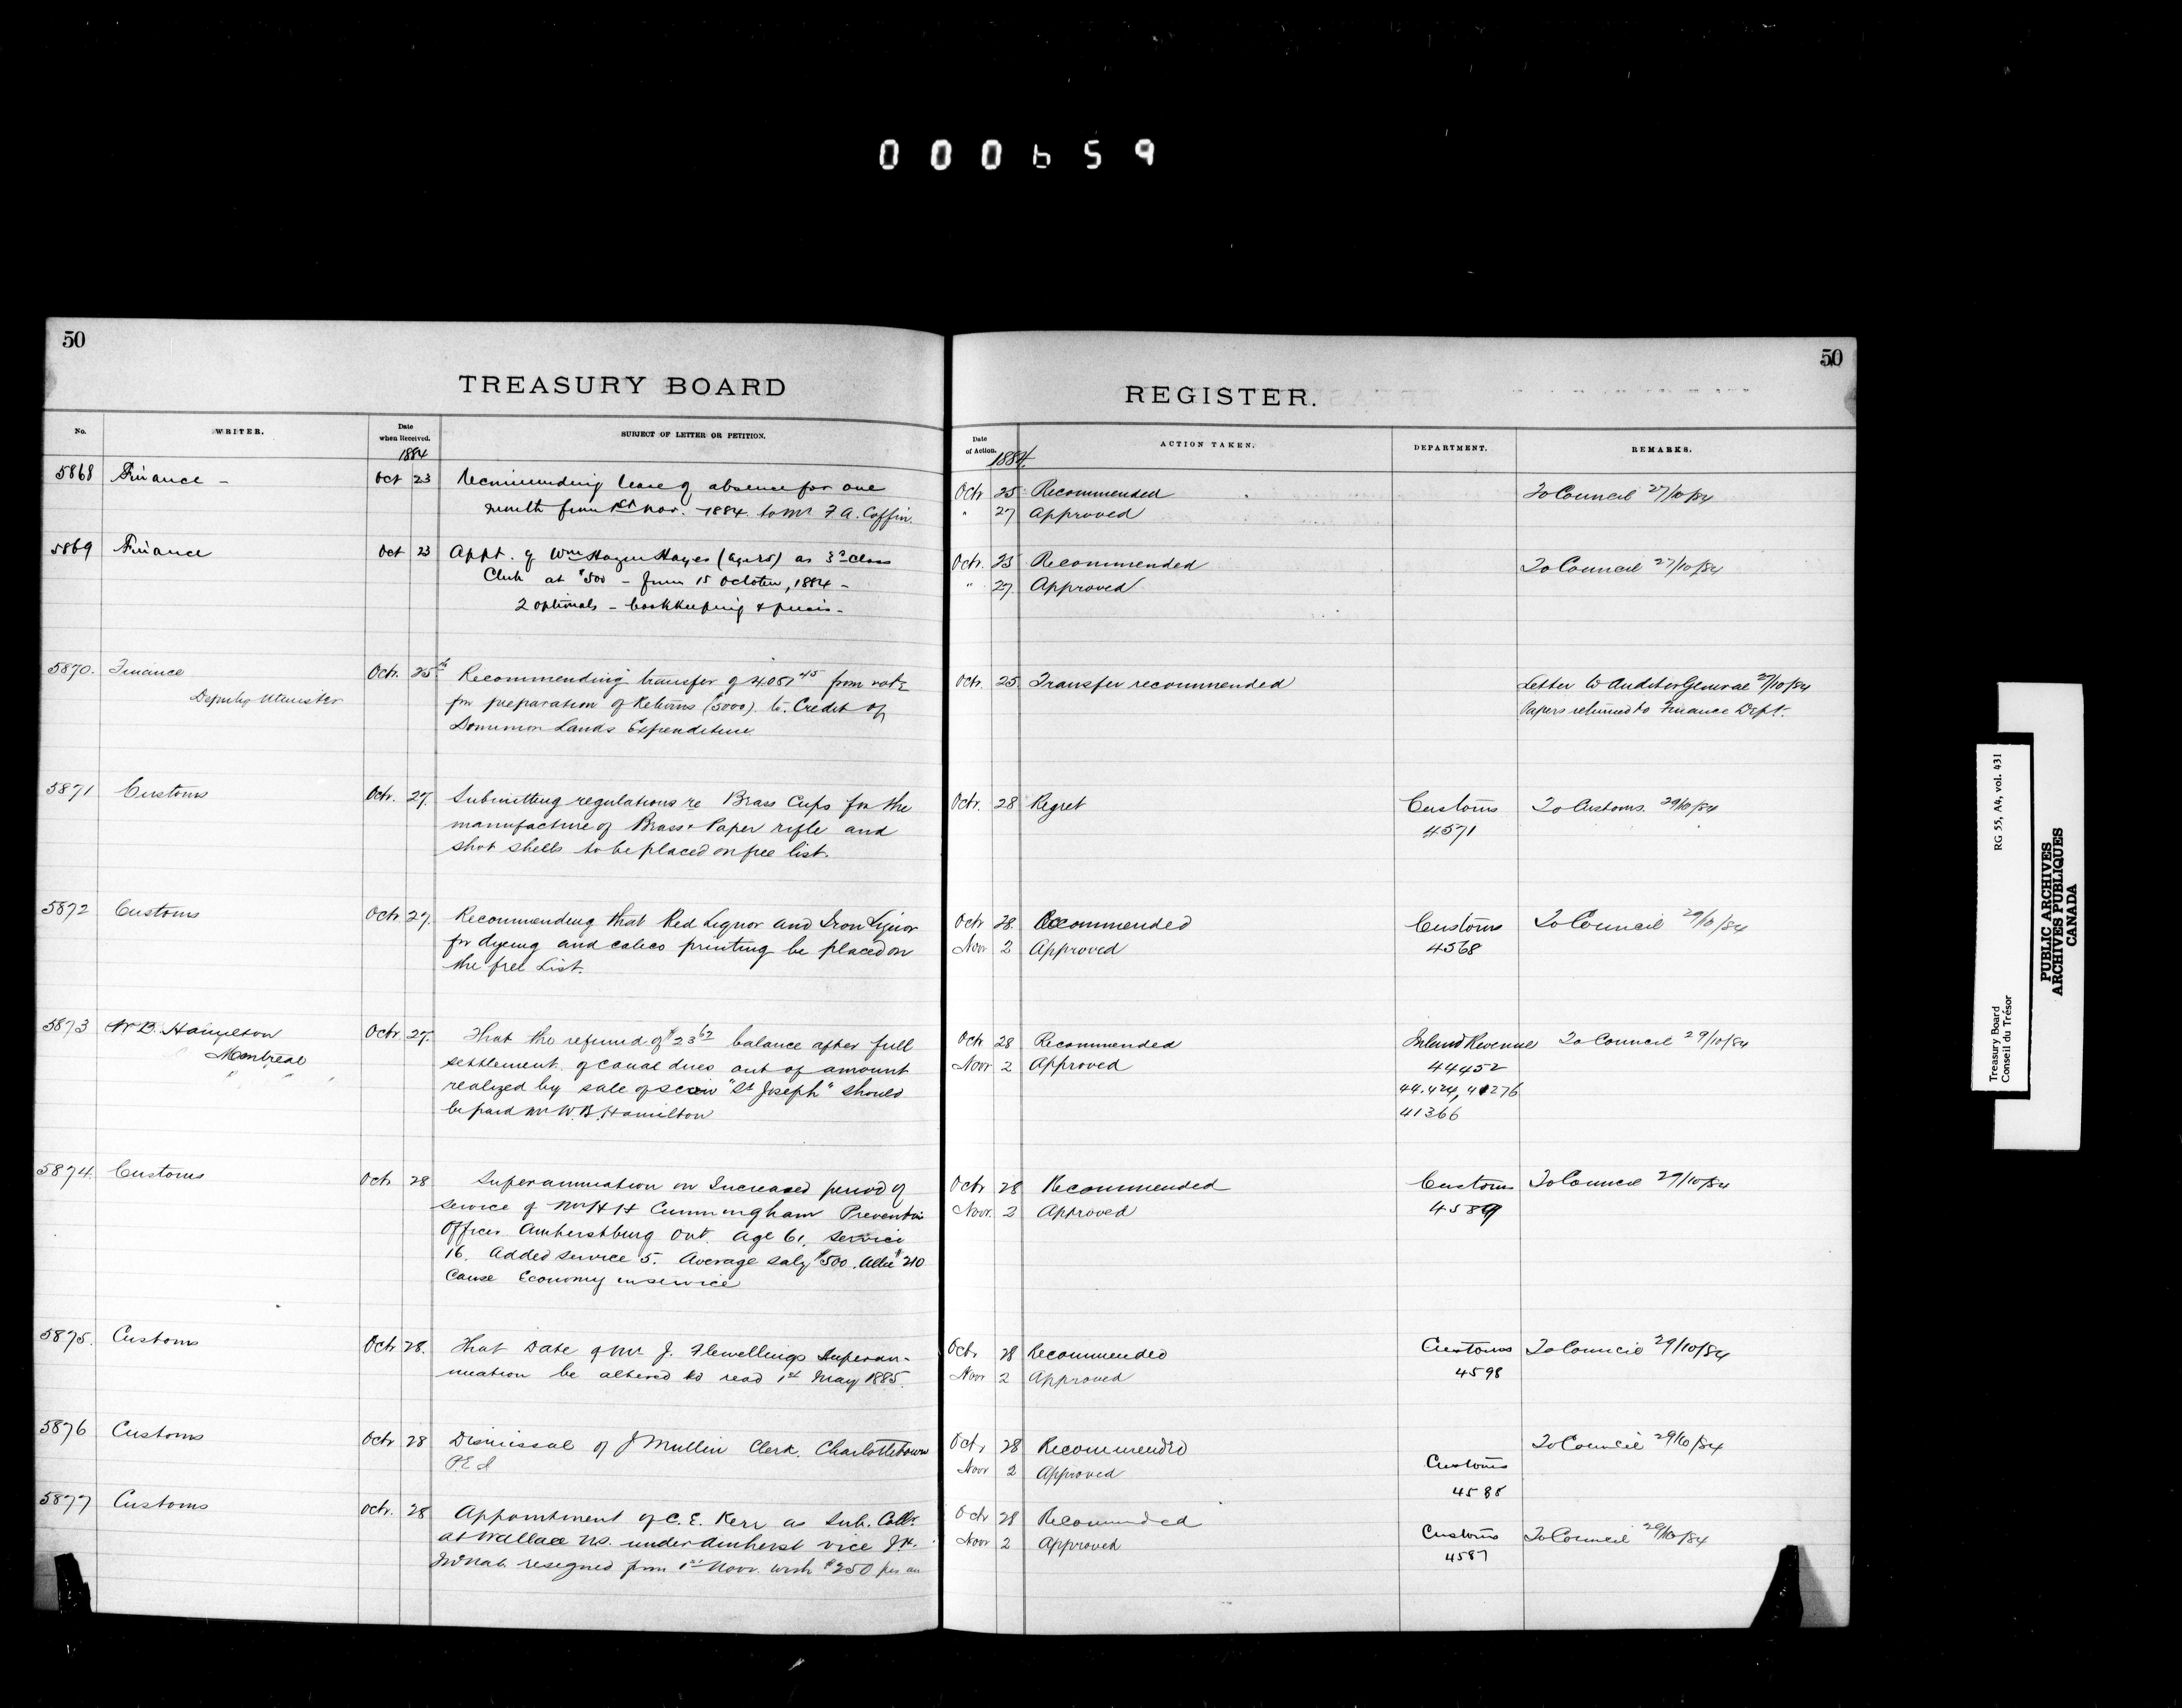 000659
50
TREASURY BOARD
No.
WRITER.
Date
when Received.
SUBJECT OF LETTER OR PETITION.
1884
5868 Finance - Oct 23 Recommending leave of absence for one
month from 1st Nov. 1884 to Mr F. A. Coffin.
5869 Finance Oct 23 Appt. of Wm Hazen Hayes (age 25) as 3d class
Clerk at $500 - from 15 October, 1884 -
2 optionals - bookkeeping & precis -
5870. Finance Octr. 25th Recommending transfer of 4051 45 from vote
Deputy Minister
for preparation of Returns (5000) to Credit of
Dominion Lands Expenditure
5871 Customs Octr. 27. Submitting regulations re Brass Cups for the
manufacture of Brass & Paper rifle and
shot shells to be placed on free list.
5872 Customs Octr 27. Recommending that Red Liquor and Iron Liquor
for dyeing and calico printing be placed on
the free List.
5873 W B. Hamilton Octr. 27. That the refund of $23 62 balance after full
Montreal
settlement of canal dues out of amount
realized by sale of scow "St Joseph" should
be paid Mr W. B. Hamilton
5874. Customs Octr 28 Superannuation on Increased period of
service of Mr H H Cunningham Preventive
Officer Amherstburg Ont. Age 61. Service
16. Added service 5. Average saly $500. Allce $210
Cause Economy in service
5875. Customs Octr 28. That Date of Mr J. Flewellings Superan-
nuation be altered to read 1st May 1885.
5876 Customs Octr 28 Dismissal of J Mullin Clerk, Charlottetown
P.E.I
5877 Customs Octr. 28 Appointment of C. E. Kerr as Sub. Collr.
at Wallace N.S. under Amherst vice J K.
McNab resigned from 1st Novr. with $250 per an
50
REGISTER.
Date
of Action.
ACTION TAKEN.
DEPARTMENT.
REMARKS.
1884.
Octr 25 Recommended To Council 27/10/84
" 27 Approved
Octr. 25 Recommended To Council 27/10/84
" 27 Approved
Octr. 25 Transfer recommended Letter to Auditor General 27/10/84
Papers returned to Finance Dept.
Octr. 28 Regret Customs To Customs. 29/10/84
4571
Octr 28. Recommended Customs To Council 29/10/84
Novr 2 Approved 4568
Octr 28 Recommended Inland Revenue To Council 29/10/84
Novr 2 Approved 44452
44.424, 41276
41366
Octr 28 Recommended Customs To Council 29/10/84
Novr. 2 Approved 4589
Octr 28 Recommended Customs To Council 29/10/84
Novr 2 Approved 4598
Octr 28 Recommended To Council 29/10/84
Novr 2 Approved Customs
4588
Octr 28 Recommended
Novr 2 Approved Customs To Council 29/10/84
4587
Treasury Board RG 55, A4, vol. 431
Conseil du Trésor
PUBLIC ARCHIVES
ARCHIVES PUBLIQUES
CANADA